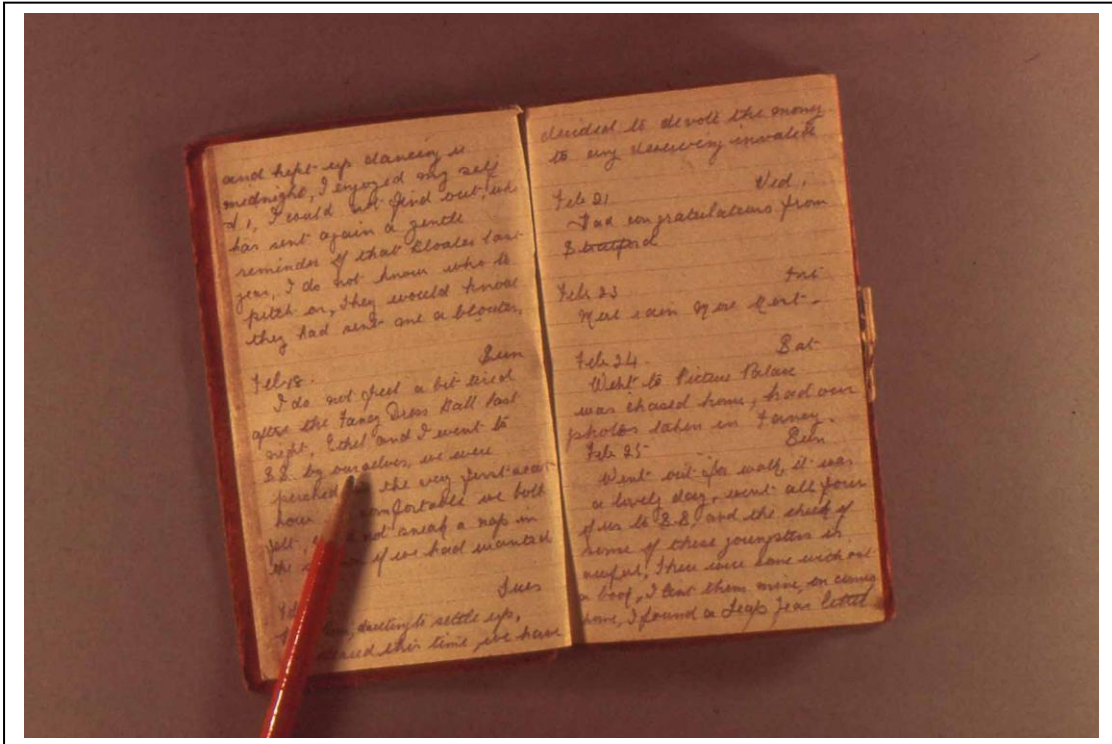 and kept up dancing
midnight, I enjoyed my self
I could not find out, who
has sent again a gentle
reminder of that Bloater last
year, I do not know who to
pitch on, they would know
they had sent me a bloater,
Sun
Feb 18.
I do not feel a bit tired
after the Fancy Dress Ball last
night, Ethel and I went to
S.S. by ourselves, we were
perched the very first seat
how comfortable we both
felt, not sneak a nap in
the if we had wanted
Tues
settle up,
this time, we have
decided to devote the money
to any deserving invalid
Feb 21 Wed.
Had congratulations from
Stratford
Feb 23 Fri
Feb 24. Sat
Went to Picture Palace
was chased home, had our
photos taken in Fancy.
Feb 25 Sun
Went out for walk, it was
a lovely day, went all four
of us to S.S. and the cheek of
some of these youngsters is
awful, There were some without
a book, I lent them mine, on coming
home, I found a Leap Year letter